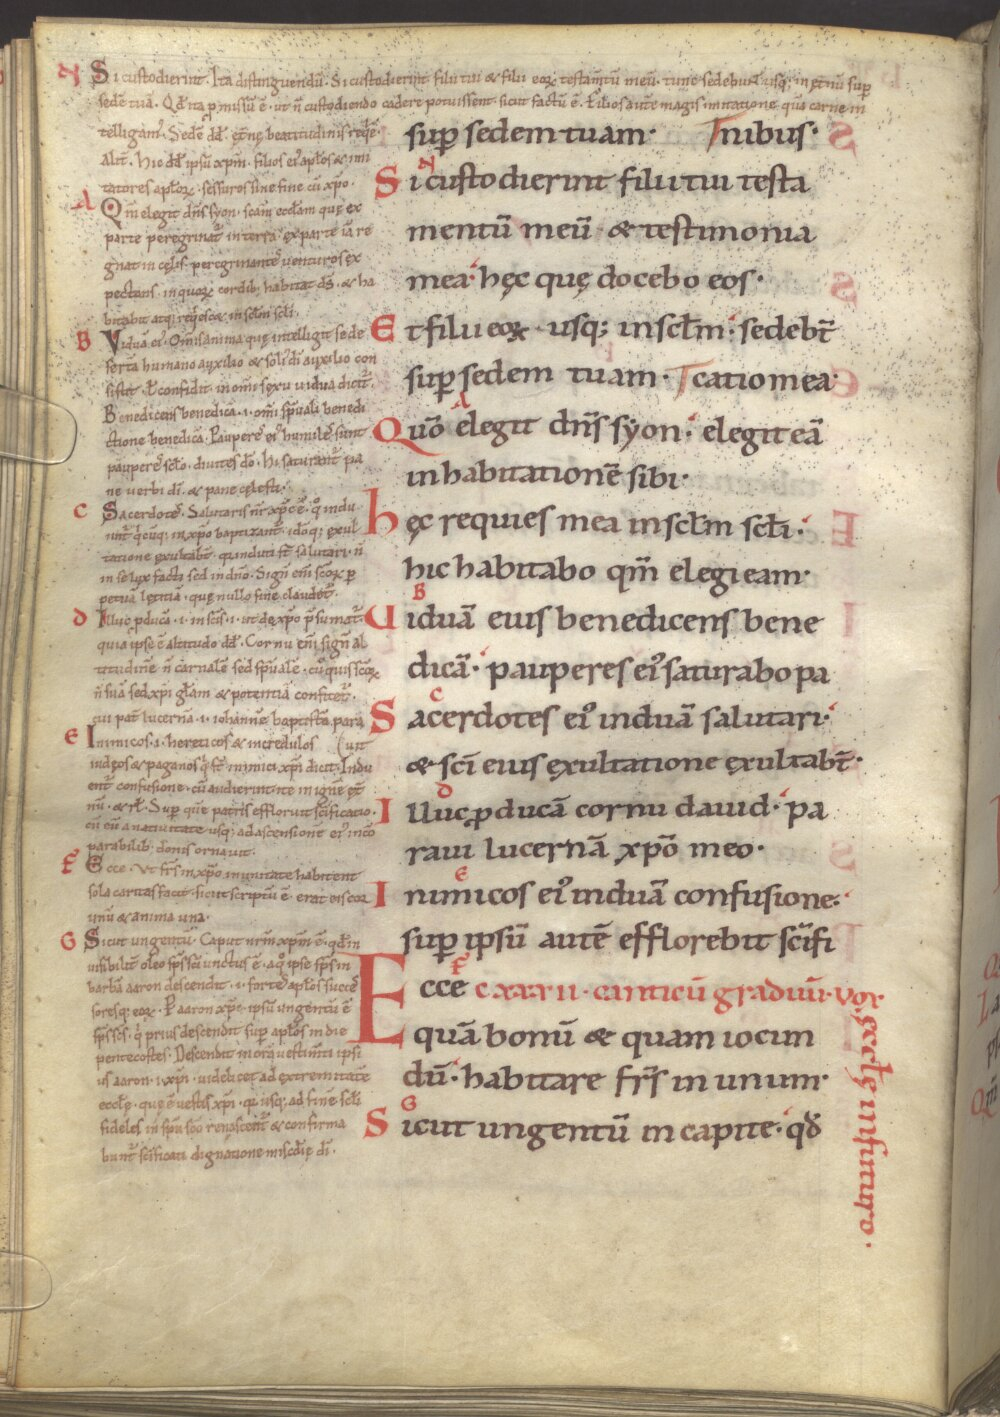 Si custodierint. Ita distinguendū. Si custodierint filii tui & filii eoꝝ testam̄tū meū. tunc sedebunt usq; in et̄nū sup
sedē tuā. Qđ ita ꝓmissū ē. ut n̄ custodiendo cadere potuissent sicut factū ē. Filios autē magis imitatione quā carne in
telligam᷒. Sedē dđ. et̄nę beatitudinis requiē
Alit̄. hic dđ ipsū xp̄m. filios ei᷒ aplos & imi
tatores aploꝝ. sessuros sine fine cū xp̄o.
A
Qm̄ elegit dn̄s syon. scam eccłam quę ex
parte peregrinat᷒ in terra. ex parte iā re
gnat in cęlis. peregrinantē venturos ex
pectans. in quoꝝ cordib; habitat dš. & ha
bitabit atq; reqesc& in scłm scłi.
B
Vidua ei᷒. Omīs anima quę intelligit se de
sertā humano auxilio & soli᷒ di auxilio con
sistit. ł confidit. in omī sexu uidua dicit᷒.
Benedicens benedicā. i. omī spūali benedi
ctione benedicā. Pauperes ei᷒ humiles sunt
pauperes scło. diuites dō. Hi saturant᷒ pa
ne uerbi dī. & pane cęlesti.
C
Sacerdotes. Salutaris nr̄ xp̄c ē. qͦ indu
unt᷒ qcūq; in xp̄o baptizant᷒. idoq; exul
tatione exultabt᷒. qui induti st̄ salutari. n̄
in se lęx facti sed in dn̄o. Sign̄ em̄ scoꝝ ꝑ
petuā lętitiā. quę nullo fine claudet᷒.
d
Illuc ꝓducā. i. in scīs. i. ut de xp̄o p̄sumat᷒.
quia ipse ē altitudo dđ. Cornu em̄ sign̄ al
titudinē n̄ carnalē sed spūalē. cū quis scoꝝ
n̄ suā sed xp̄i głam & potentiā confitet᷒.
cui pat᷒ lucernā. i. iohannē baptistā para
E
Inimicos. i. hereticos & incredulos (uit
iudęos & paganos q st̄ inimici xp̄i dicit. Indu
ent᷒ confusione. cū audierint. ite in ignē et̄
nū. & rł. Sup quē patris effloruit scīficatio.
cū eū a natiuitate usq; ad ascensionē ei᷒ incō
parabilib; donis ornauit.
F
Ecce. Ut frs̄ in xp̄o in unitate habitent
sola caritas facit. sicut scriptū ē. erat oīs cor
unū & anima una.
G
Sicut ungentū. Caput nr̄m xp̄m ē. qđ in
uisibilit᷒ oleo sps̄ sci unctus ē. a qͦ ipse sps̄ in
barbā aaron descendit. i. fortes aplos succes
soresq; eoꝝ. P aaron xp̄c. ipsū ungentū ē
sps̄ scs̄. q prius descendit sup aplos in die
pentecostes. Descendit in orā uestim̄ti ipsi
us aaron. i. xp̄i. uidelicet ad extremitatē
eccłę. que ē uestis xp̄i. qr usq; ad finē scłi
fideles in spū sco renascent᷒ & confirma
bunt᷒ scīficati dignatione miscdię dī.
sup sedem tuam. nibus.
Si custodierint filii tui testa
mentū meū & testimonia
mea. hęc quę docebo eos.
Et filii eoꝝ usq; in scłm. sedebt̄
sup sedem tuam. catio mea
Qūo elegit dn̄s syon. elegit eā
in habitationē sibi.
hęc requies mea in scłm scłi.
hic habitabo qm̄ elegi eam.
Uiduā eius benedicens bene
dicā. pauperes ei᷒ saturabo pa
Sacerdotes ei᷒ induā salutari.
& scī eius exultatione exultabt̄.
Illuc ꝓducā cornu dauid. pa
raui lucernā xp̄o meo.
Inimicos ei᷒ induā confusione.
sup ipsū autē efflorebit scīfi
Ecce cxxxii. canticū graduū. vox
ęcclę in futuro.
quā bonū & quam iocun
dū. habitare frs̄ in unum.
Sicut ungentū in capite. qđ